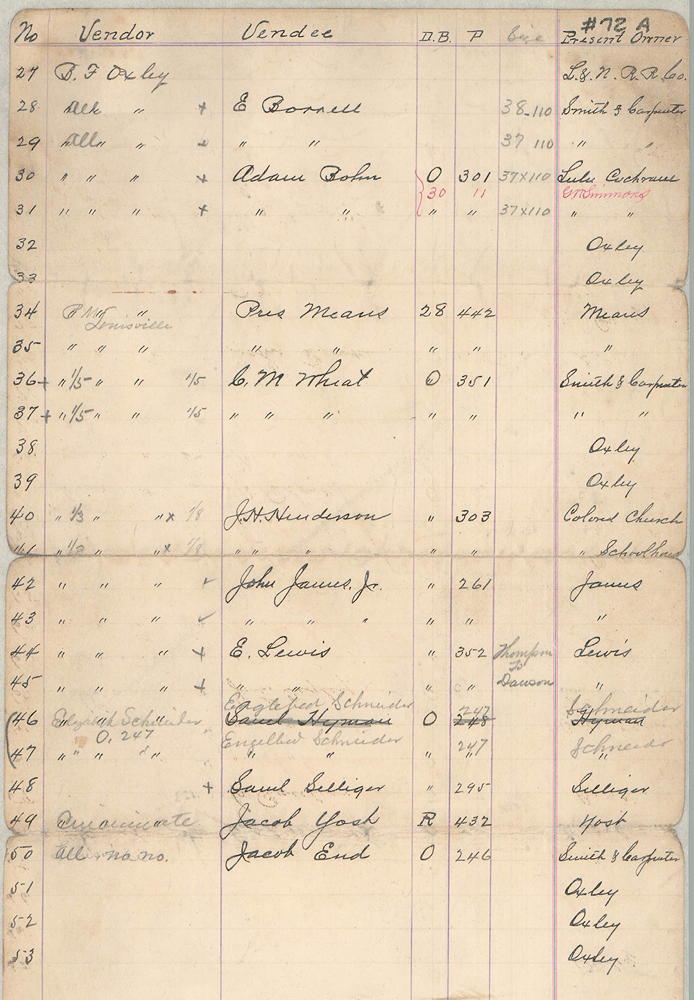 #72 A
No Vendor Vendee D.B. P Size Present Owner
27 B. F Oxley L. & N. R. R. Co.
28 All " + E Borrell 38-110 Smith & Carpenter
29 " All " + " " 37 110 " "
30 " " " + Adam Bohn O 301 37x110 Lulu Cochrane
30 11 Simmons
31 " " " + " " " " 37x110 " "
32 Oxley
33 Oxley
34 " " Pres Means 28 442 Means
Louisville
35 " " " " " " " "
36 + " 1/5 " " 1/5 C. M Wheat O 351 Smith & Carpenter
37 + " 1/5 " " 1/5 " " " " " " "
38 Oxley
39 Oxley
40 " 1/3 " " x 1/8 J. H. Henderson " 303 Colored Church
41 " " " x 1/8 " " " " " " Schoolhouse
42 " " " ✓ John James, Jr. " 261 James
43 " " " ✓ " " " " " "
44 " " " + E. Lewis " 352 Thompson Lewis
to
45 " " " + " " " " Dawson "
Schnieder 247 Schneider
46 Elizabeth Schnieder Saml Hyman O 248 Hyman
O. 247 Engelbed Schnieder 247 Schneider
47 " " " " " " " "
48 + Saml Selliger " 295 Selliger
49 Jacob Yosh R 432 Yosh
50 All no no. Jacob End O 246 Smith & Carpenter
51 Oxley
52 Oxley
53 Oxley